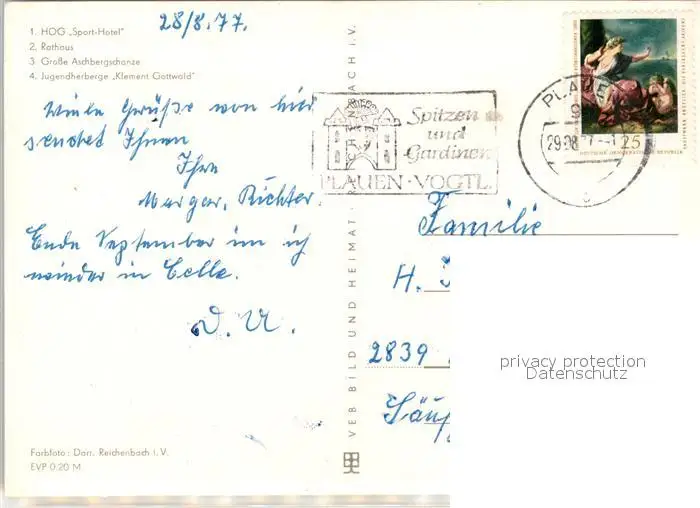 28/8.77.
1. HOG „Sport-Hotel"
2. Rathaus
3 Große Aschbergschanze
4. Jugendherberge „Klement Gottwald"
Viele Grüße von hier
sendet Ihnen
Ihre
Margar. Richter
Ende September bin ich
wieder in Celle.
D. U.
Farbfoto: Darr, Reichenbach i. V.
EVP 0.20 M
VEB BILD UND HEIMAT REICHENBACH I. V.
Spitzen
und
Gardinen
PLAUEN · VOGTL.
PLAUEN
9
29.08.77
c
25
DEUTSCHE DEMOKRATISCHE REPUBLIK
Familie
H.
2839
privacy protection
Datenschutz